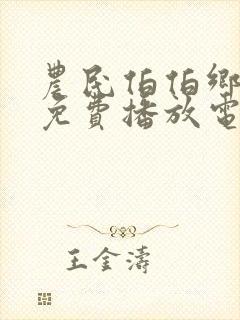 農民伯伯鄉
免費播放電
王金濤